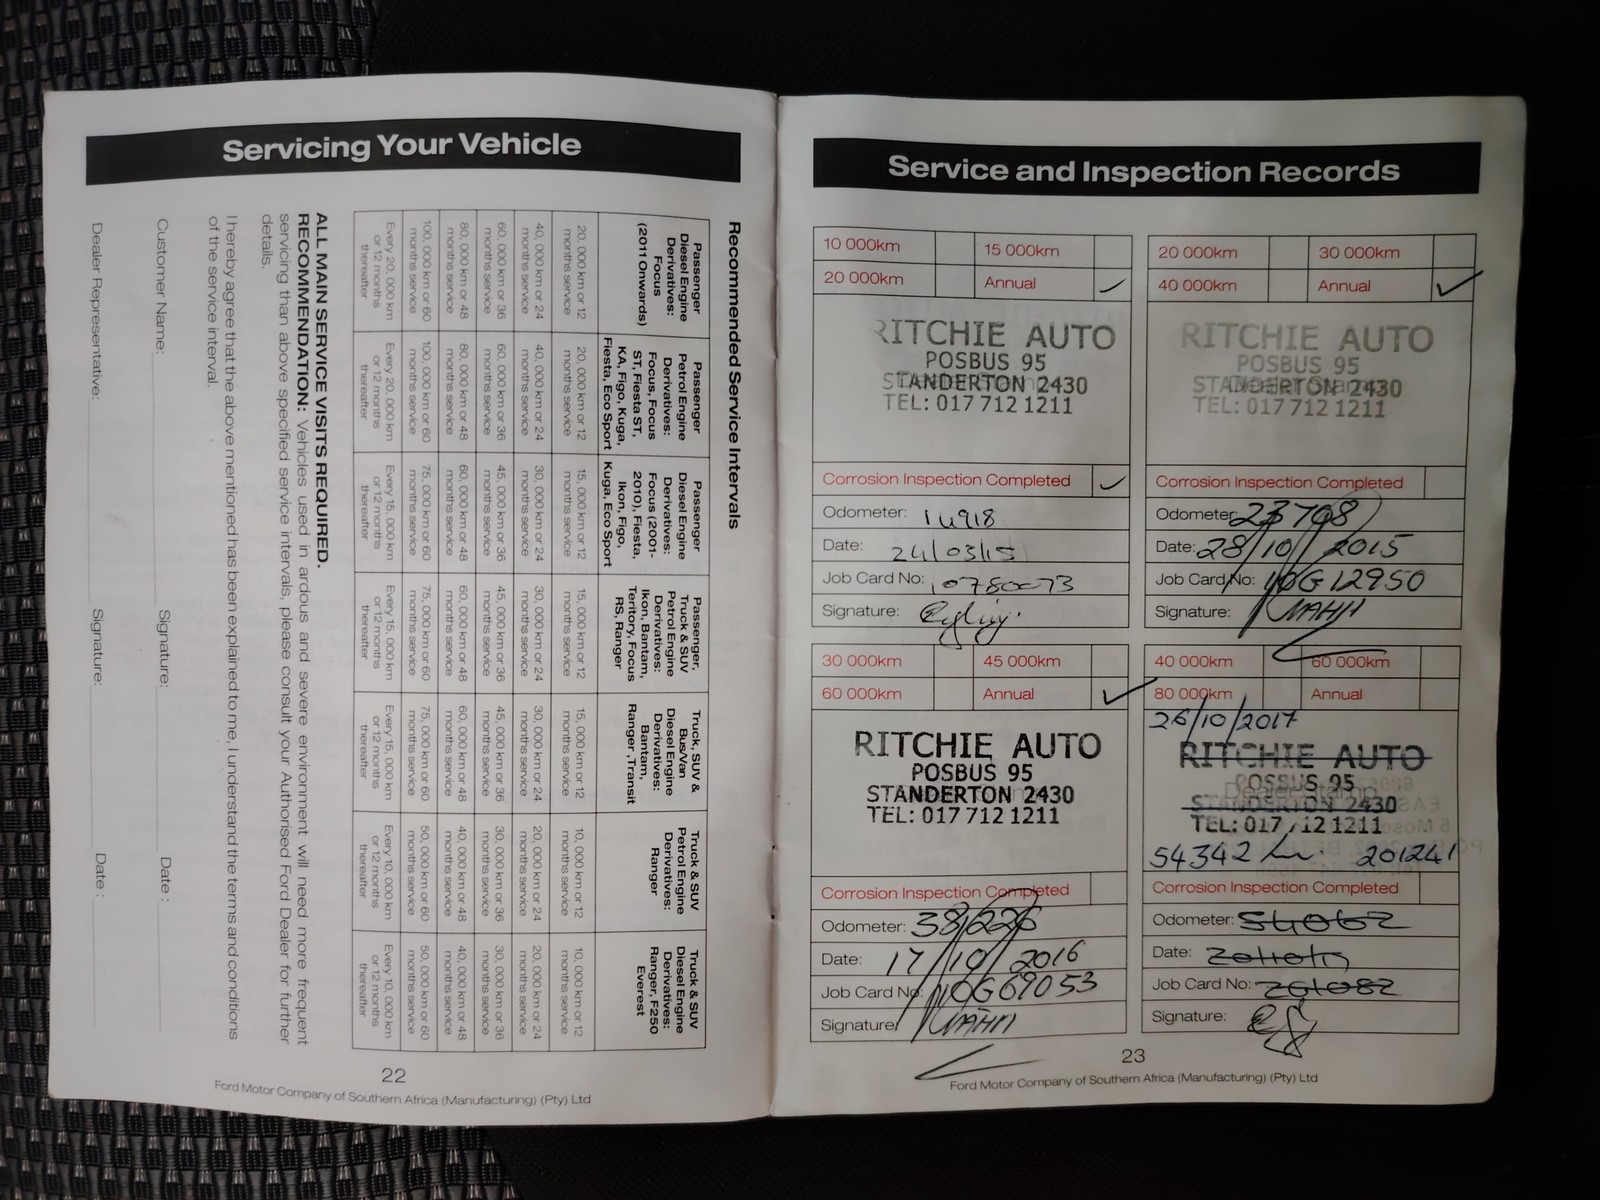 Servicing Your Vehicle
Recommended Service Intervals
Passenger Diesel Engine Derivatives: Focus (2011 Onwards)
20, 000 km or 12 months service
40, 000 km or 24 months service
60, 000 km or 36 months service
80, 000 km or 48 months service
100, 000 km or 60 months service
Every 20, 000 km or 12 months thereafter
Passenger Petrol Engine Derivatives: Focus, Focus ST, Fiesta ST, KA, Figo, Kuga, Fiesta, Eco Sport
20, 000 km or 12 months service
40, 000 km or 24 months service
60, 000 km or 36 months service
80, 000 km or 48 months service
100, 000 km or 60 months service
Every 20, 000 km or 12 months thereafter
Passenger Diesel Engine Derivatives: Focus (2001-2010), Fiesta, Ikon, Figo, Kuga, Eco Sport
15, 000 km or 12 months service
30, 000 km or 24 months service
45, 000 km or 36 months service
60, 000 km or 48 months service
75, 000 km or 60 months service
Every 15, 000 km or 12 months thereafter
Passenger, Truck & SUV Petrol Engine Derivatives: Ikon, Bantam, Teritory, Focus RS, Ranger
15, 000 km or 12 months service
30, 000 km or 24 months service
45, 000 km or 36 months service
60, 000 km or 48 months service
75, 000 km or 60 months service
Every 15, 000 km or 12 months thereafter
Truck, SUV & Bus/Van Diesel Engine Derivatives: Bantam, Ranger ,Transit
15, 000 km or 12 months service
30, 000 km or 24 months service
45, 000 km or 36 months service
60, 000 km or 48 months service
75, 000 km or 60 months service
Every 15, 000 km or 12 months thereafter
Truck & SUV Petrol Engine Derivatives: Ranger
10, 000 km or 12 months service
20, 000 km or 24 months service
30, 000 km or 36 months service
40, 000 km or 48 months service
50, 000 km or 60 months service
Every 10, 000 km or 12 months thereafter
Truck & SUV Diesel Engine Derivatives: Ranger, F250 Everest
10, 000 km or 12 months service
20, 000 km or 24 months service
30, 000 km or 36 months service
40, 000 km or 48 months service
50, 000 km or 60 months service
Every 10, 000 km or 12 months thereafter
ALL MAIN SERVICE VISITS REQUIRED.
RECOMMENDATION: Vehicles used in ardous and severe environment will need more frequent
servicing than above specified service intervals, please consult your Authorised Ford Dealer for further
details.
I hereby agree that the above mentioned has been explained to me, I understand the terms and conditions
of the service interval.
Customer Name: Signature: Date :
Dealer Representative: Signature: Date :
22
Ford Motor Company of Southern Africa (Manufacturing) (Pty) Ltd
Service and Inspection Records
10 000km 15 000km
20 000km Annual
RITCHIE AUTO
POSBUS 95
STANDERTON 2430
TEL: 017 712 1211
Corrosion Inspection Completed
Odometer: 14918
Date: 24/03/15
Job Card No: 10780073
Signature:
20 000km 30 000km
40 000km Annual
RITCHIE AUTO
POSBUS 95
STANDERTON 2430
TEL: 017 712 1211
Corrosion Inspection Completed
Odometer: 23708
Date: 28/10/2015
Job Card No: 10G12950
Signature:
30 000km 45 000km
60 000km Annual
RITCHIE AUTO
POSBUS 95
STANDERTON 2430
TEL: 017 712 1211
Corrosion Inspection Completed
Odometer: 38226
Date: 17/10/2016
Job Card No: 10G69053
Signature:
40 000km 60 000km
80 000km Annual
26/10/2017
RITCHIE AUTO
POSBUS 95
STANDERTON 2430
TEL: 017 712 1211
54342 201241
Corrosion Inspection Completed
Odometer: 54062
Date:
Job Card No:
Signature:
23
Ford Motor Company of Southern Africa (Manufacturing) (Pty) Ltd